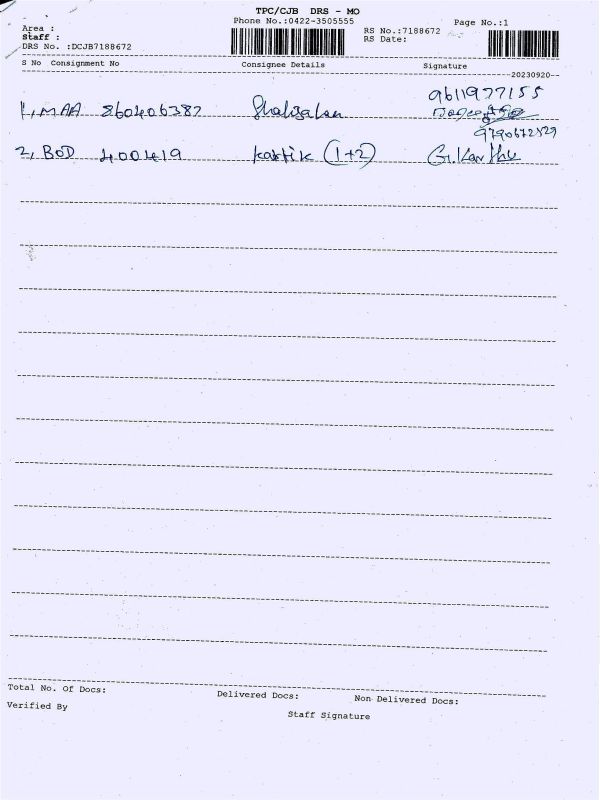 TPC/CJB DRS - MO
Phone No.:0422-3505555
Page No.:1
Area :
Staff :
DRS No. :DCJB7188672
RS No.:7188672
RS Date:
S No Consignment No Consignee Details Signature
--20230920--
9611977155
1, MAA 860406387
9790672829
2, BOD 400419 kartik (1+2) G.Karthi
Total No. Of Docs: Delivered Docs: Non Delivered Docs:
Verified By Staff Signature